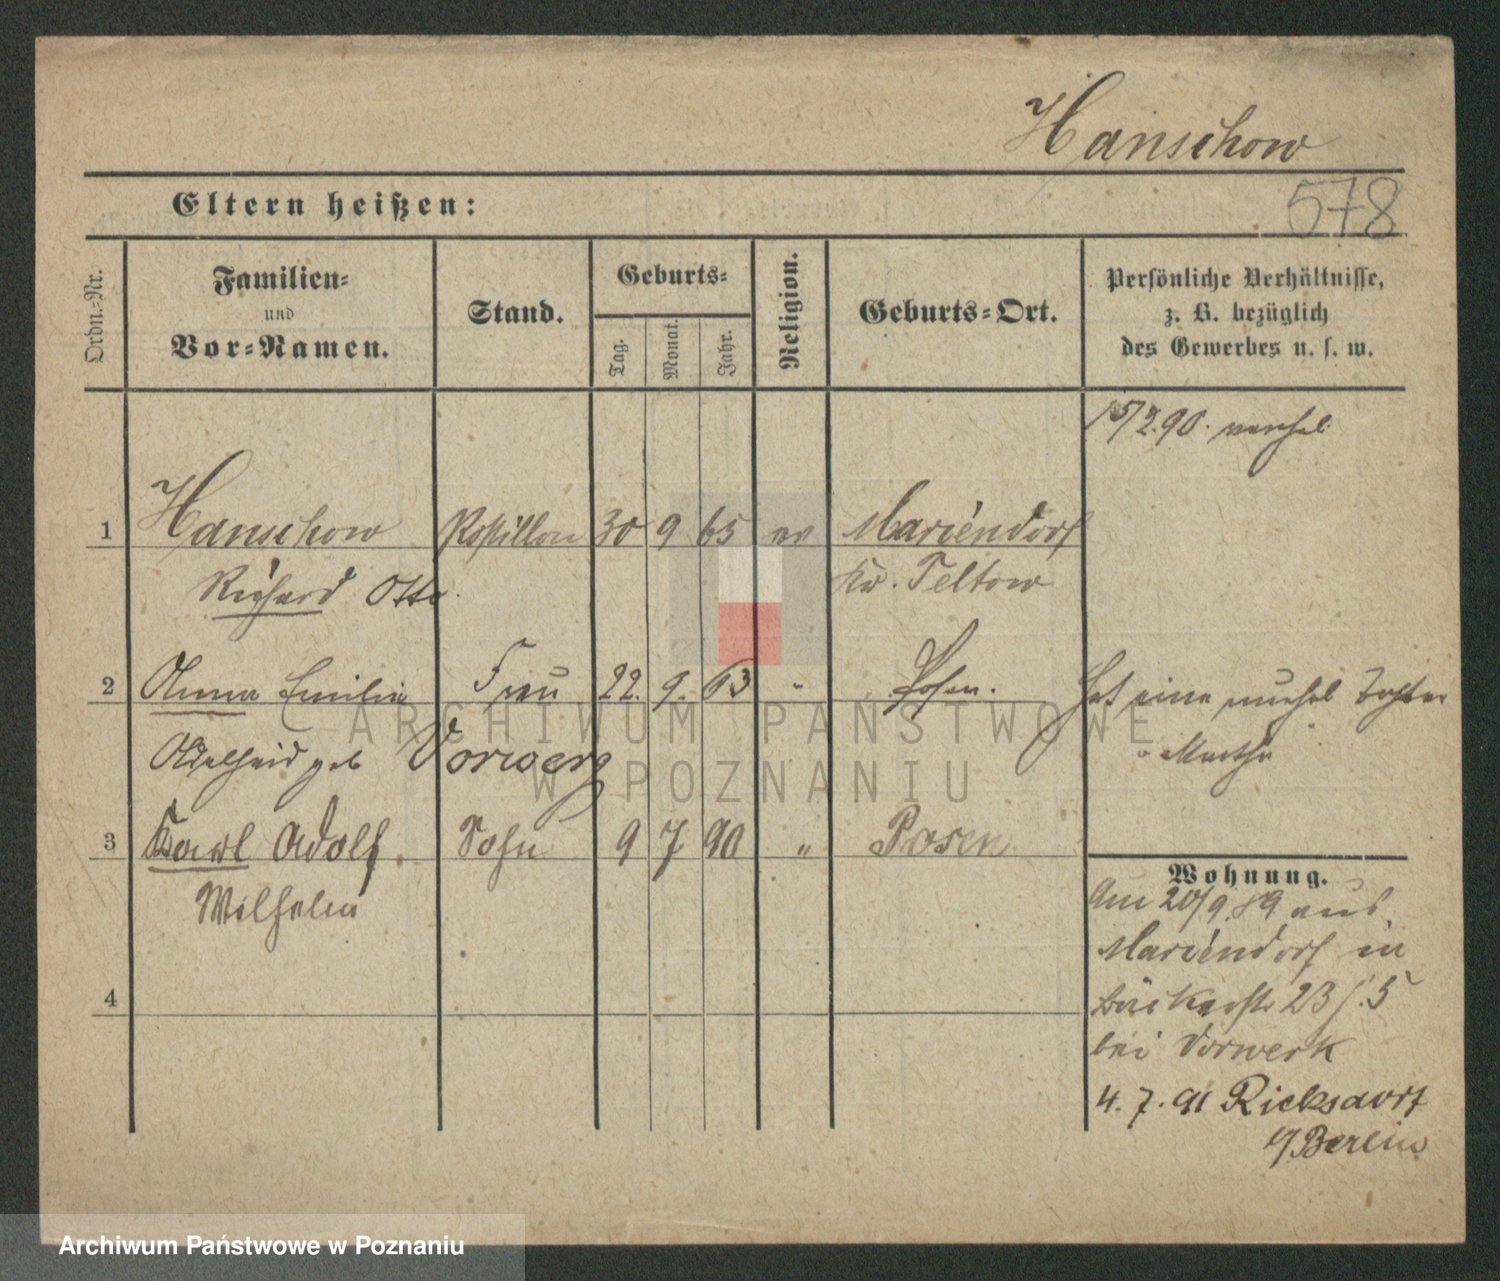 Hanschow
578
Eltern heißen:
Ordn.-Nr.
Familien-
und
Vor-Namen.
Stand.
Geburts-
Tag.
Monat.
Jahr.
Religion.
Geburts-Ort.
Persönliche Verhältnisse,
z. B. bezüglich
des Gewerbes u. s. w.
15/2.90. verehel.
1 Hanschow Postillon 30 9 65 ev Mariendorf
Richard Otto. Kr. Teltow
2 Anna Emilie Frau 22. 9. 63 " Posen. Hat eine unehel Tochter
Adelheid geb Vorwerg Martha
3 Karl Adolf Sohn 9 7 90 " Posen
Wilhelm
4
Wohnung.
Am 20/9.89 aus
Mariendorf in
Bäckerstr 23 5
bei Vorwerk
4. 7. 91 Ricksdorf
b/Berlin
ARCHIWUM PAŃSTWOWE
W POZNANIU
Archiwum Państwowe w Poznaniu